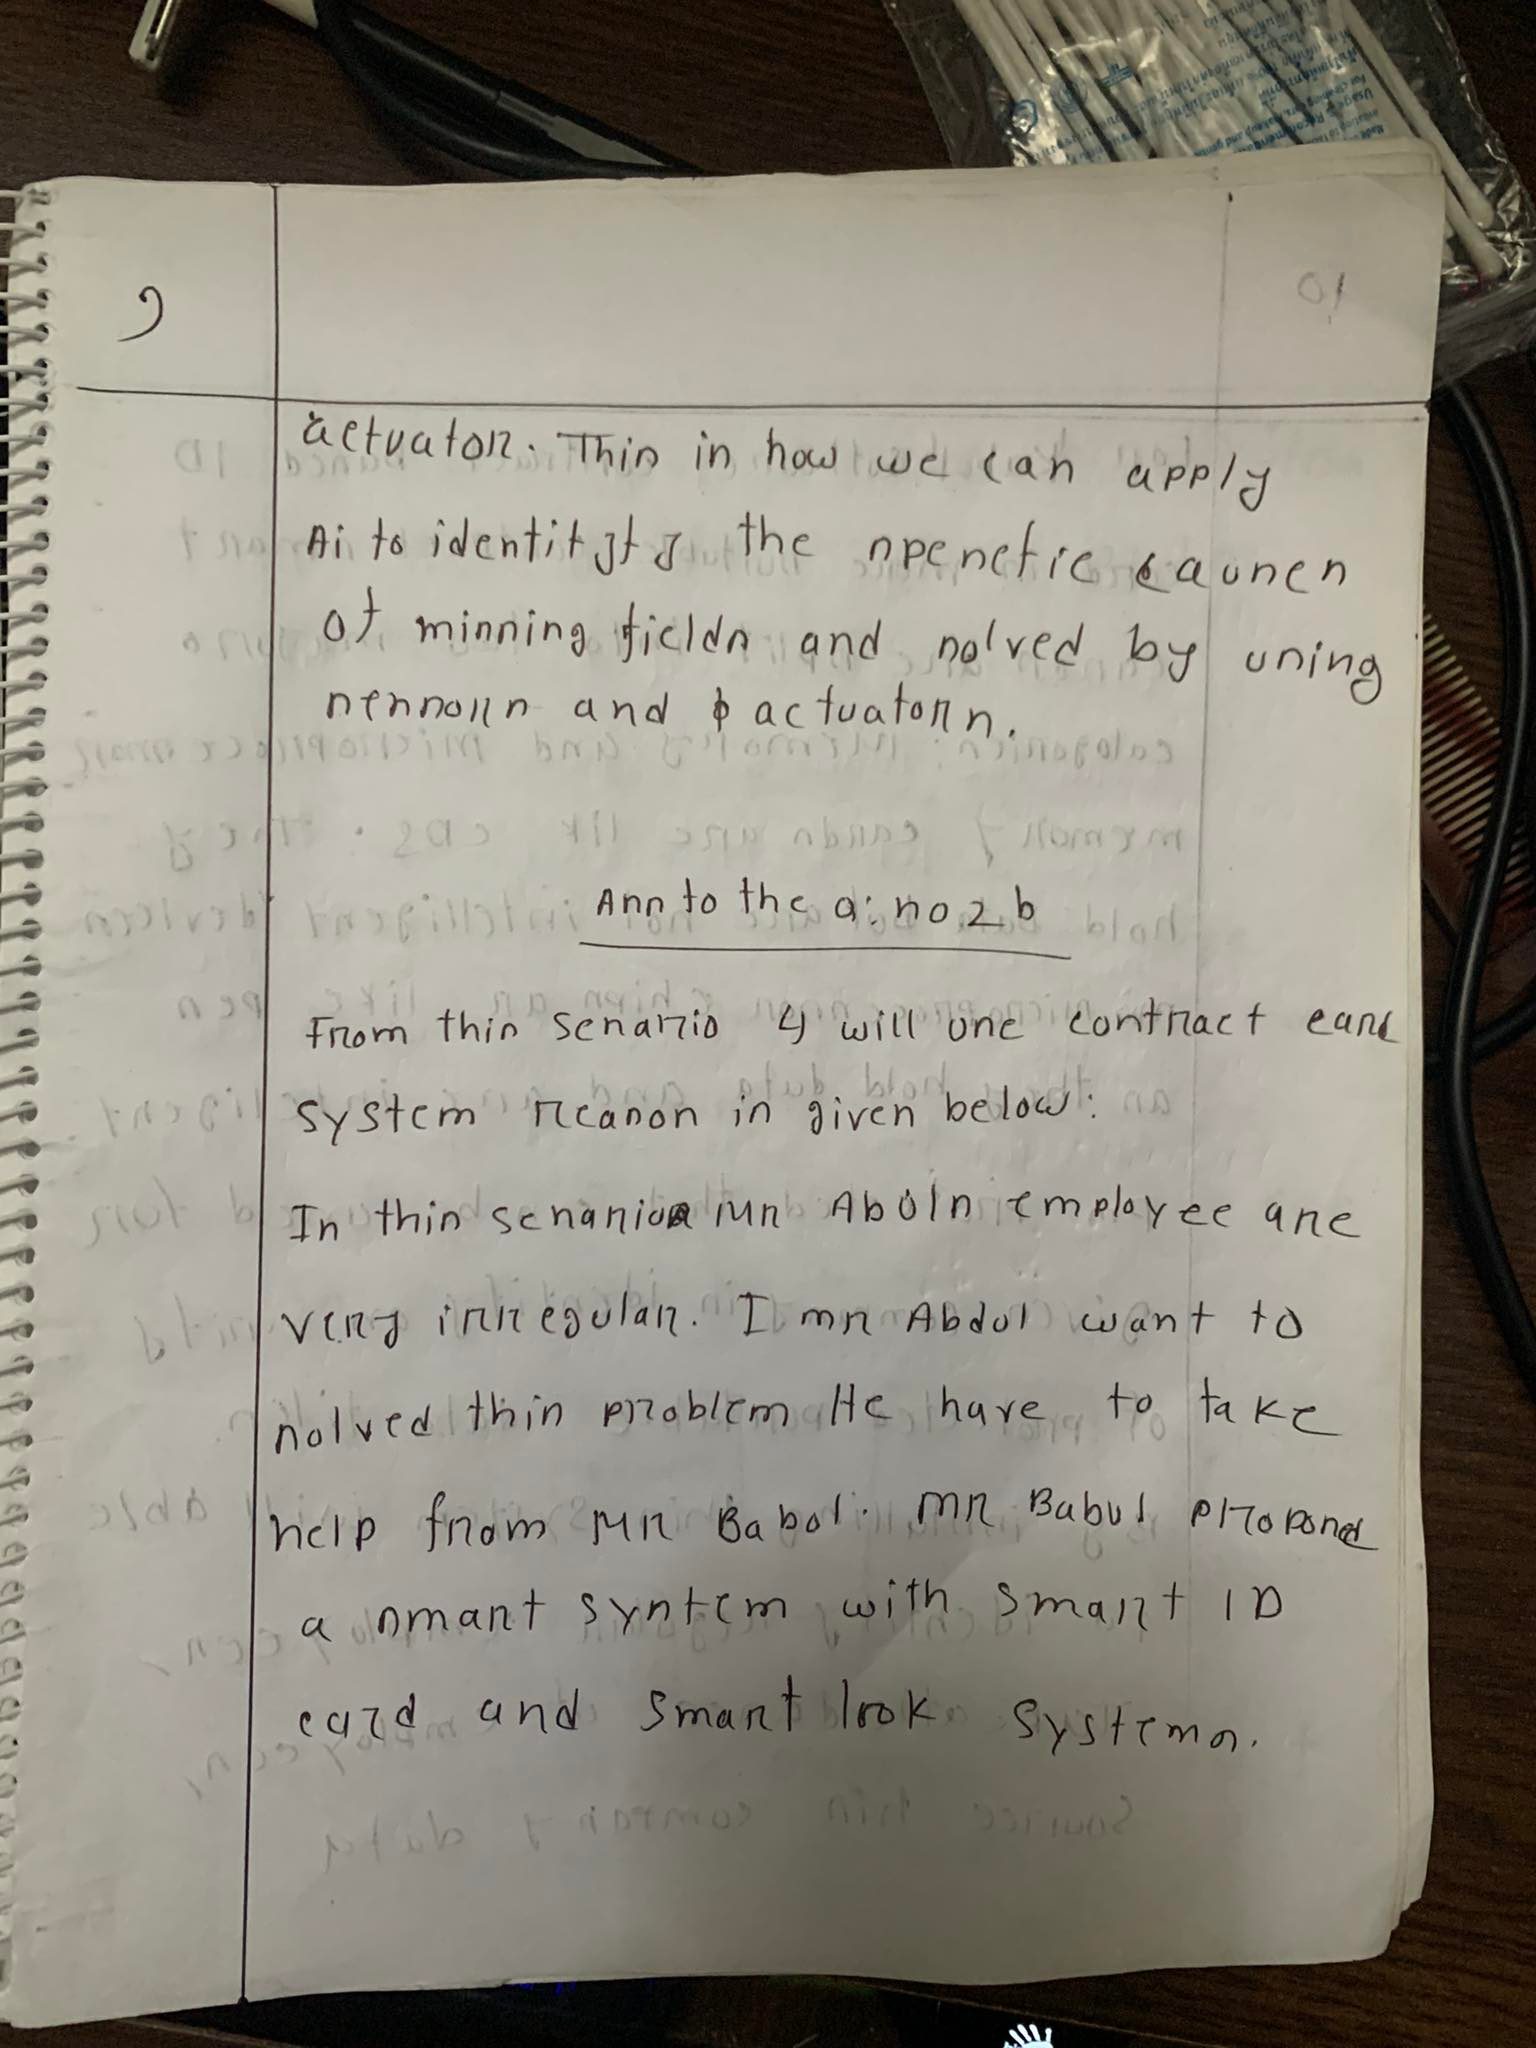 9
10
actuator. This is how we can apply
Ai to identify the spenefic causes
of minning fields and solved by using
sensors and actuators.
Ans to the Q: no 2 b
From this senario 4 will use contract card
system reason is given below:
In this senario Mr Abduls employee are
very irregular. I mr Abdul want to
solved this problem He have to take
help from Mr Babul. Mr Babul proposed
a smart system with smart ID
card and smart look systems.